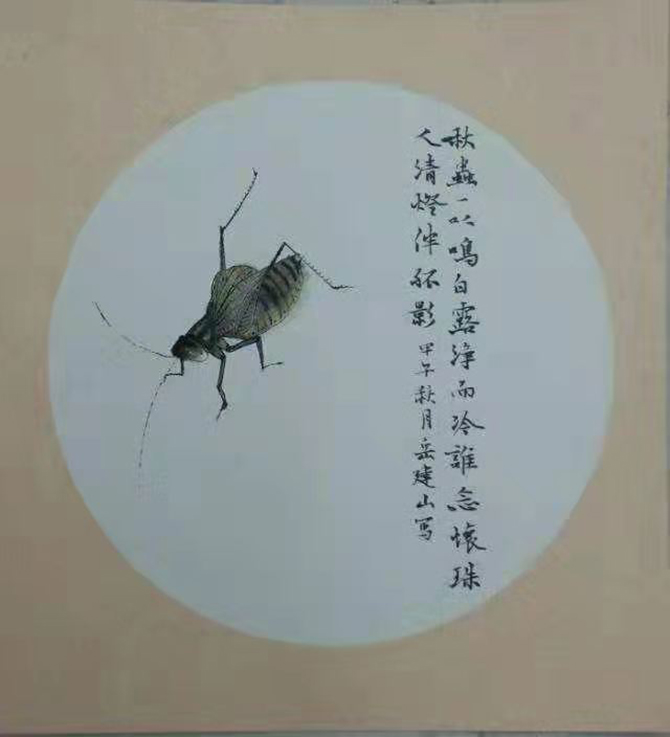 秋蟲一以鳴白露淨而冷誰念懷珠
人清燈伴孤影 甲午秋月岳建山写